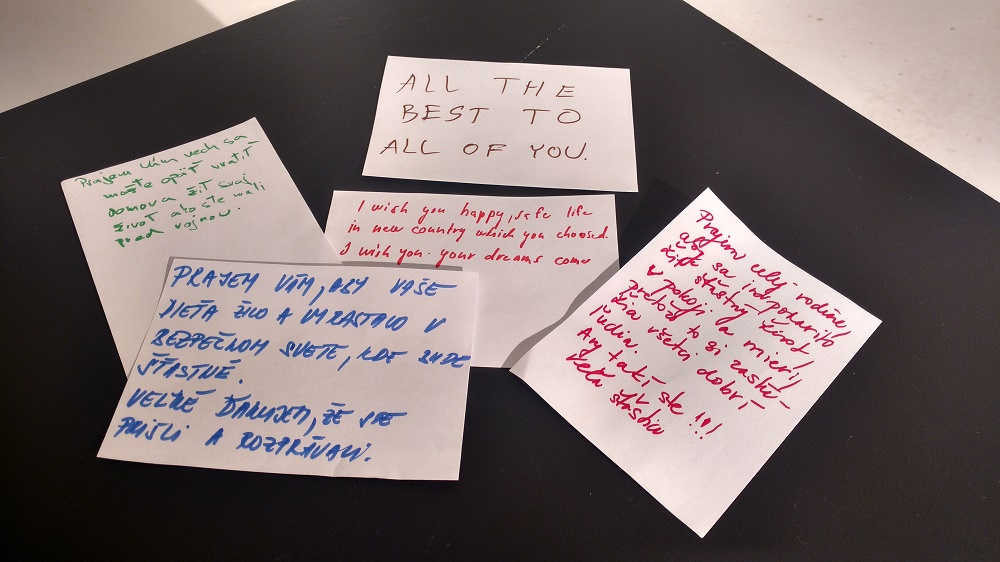 ALL THE
BEST TO
ALL OF YOU.
Prajem Vám nech sa
môžte opäť vrátiť
domov a žiť svoj
život ako ste mali
pred vojnou.
I wish you happy, safe life
in new country which you choosed.
I wish you your dreams come
PRAJEM VÁM, ABY VAŠE
DIEŤA ŽILO A VYRASTALO V
BEZPEČNOM SVETE, KDE BUDE
ŠŤASTNÉ.
VEĽMI ĎAKUJEM, ŽE STE
PRIŠLI A ROZPRÁVALI.
Prajem celej rodine,
aby sa im podarilo
žiť šťastný život
v pokoji a mieri,
pretože to si zaslú-
žia všetci dobrí
ľudia.
A vy takí ste !!!
Veľa šťastia